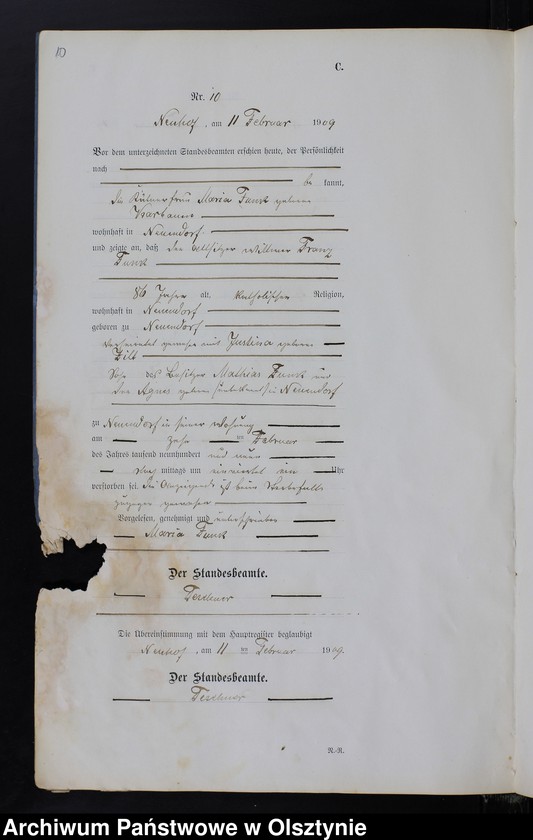 10
C.
Nr. 10
Neuhof, am 11 Februar 1909
Vor dem unterzeichneten Standesbeamten erschien heute, der Persönlichkeit
nach
be kannt,
die Maria Funk geborene
wohnhaft in Neuendorf
und zeigte an, daß der Altsitzer Wittwer Franz
Funk
86 Jahre alt, katholischer Religion,
wohnhaft in Neuendorf
geboren zu Neuendorf
verheirathet gewesen mit Justina geborene
Sohn des Besitzer Mathias Funk und
der Agnes geborene in Neuendorf
zu Neuendorf in seiner Wohnung
am zehn ten Februar
des Jahres tausend neunhundert und neun
mittags um ein Uhr
verstorben sei. Die ist beim Sterbefalle
zugegen gewesen
Vorgelesen, genehmigt und unterschrieben
Maria Funk
Der Standesbeamte.
Teschner
Die Übereinstimmung mit dem Hauptregister beglaubigt
Neuhof, am 11 ten Februar 1909.
Der Standesbeamte.
Teschner
R.-R.
Archiwum Państwowe w Olsztynie